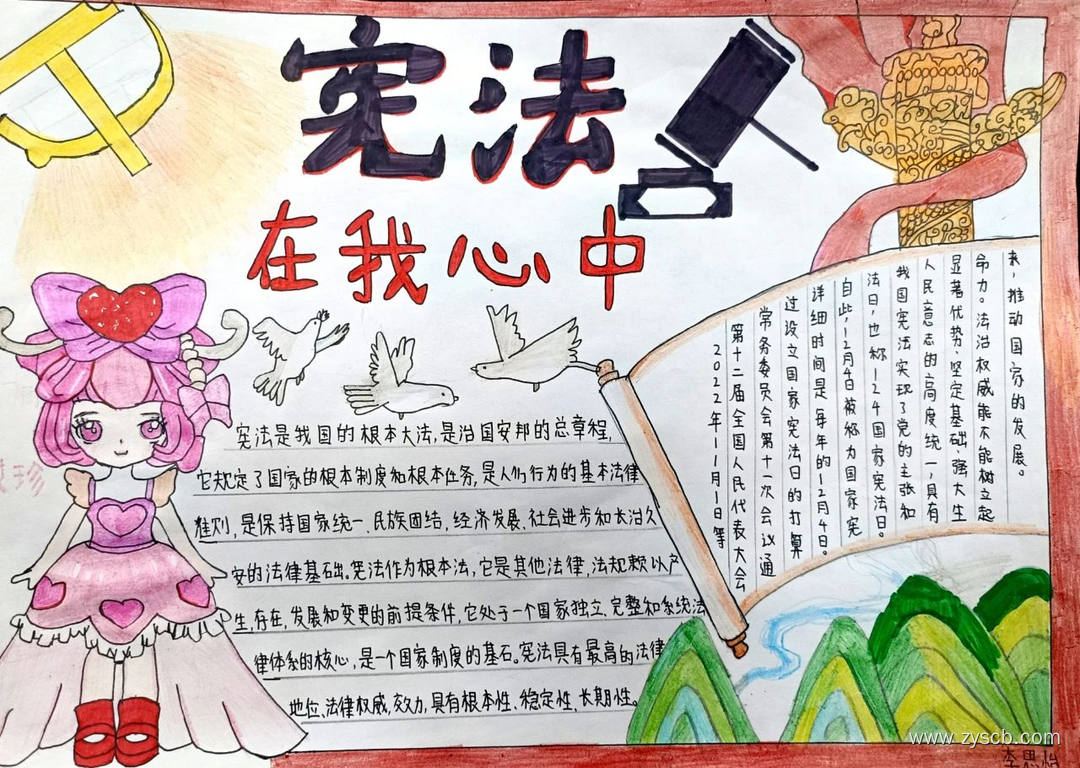 宪法
在我心中
宪法是我国的根本大法,是治国安邦的总章程,
它规定了国家的根本制度和根本任务,是人们行为的基本法律
准则,是保持国家统一、民族团结,经济发展、社会进步和长治久
安的法律基础。宪法作为根本法,它是其他法律,法规赖以产
生,存在,发展和变更的前提条件,它处于一个国家独立、完整和系统法
律体系的核心,是一个国家制度的基石。宪法具有最高的法律
地位、法律权威,效力,具有根本性、稳定性,长期性。
2022年11月1日等
第十二届全国人民代表大会
常务委员会第十一次会议通
过设立国家宪法日的打算
详细时间是每年的12月4日。
自此,12月4日被称为国家宪
法日,也称124国家宪法日。
我国宪法实现了党的主张和
人民意志的高度统一,具有
显著代势、坚定基础、强大生
命力。法治权威能不能树立起
来,推动国家的发展。
www.zyscb.com
李思怡